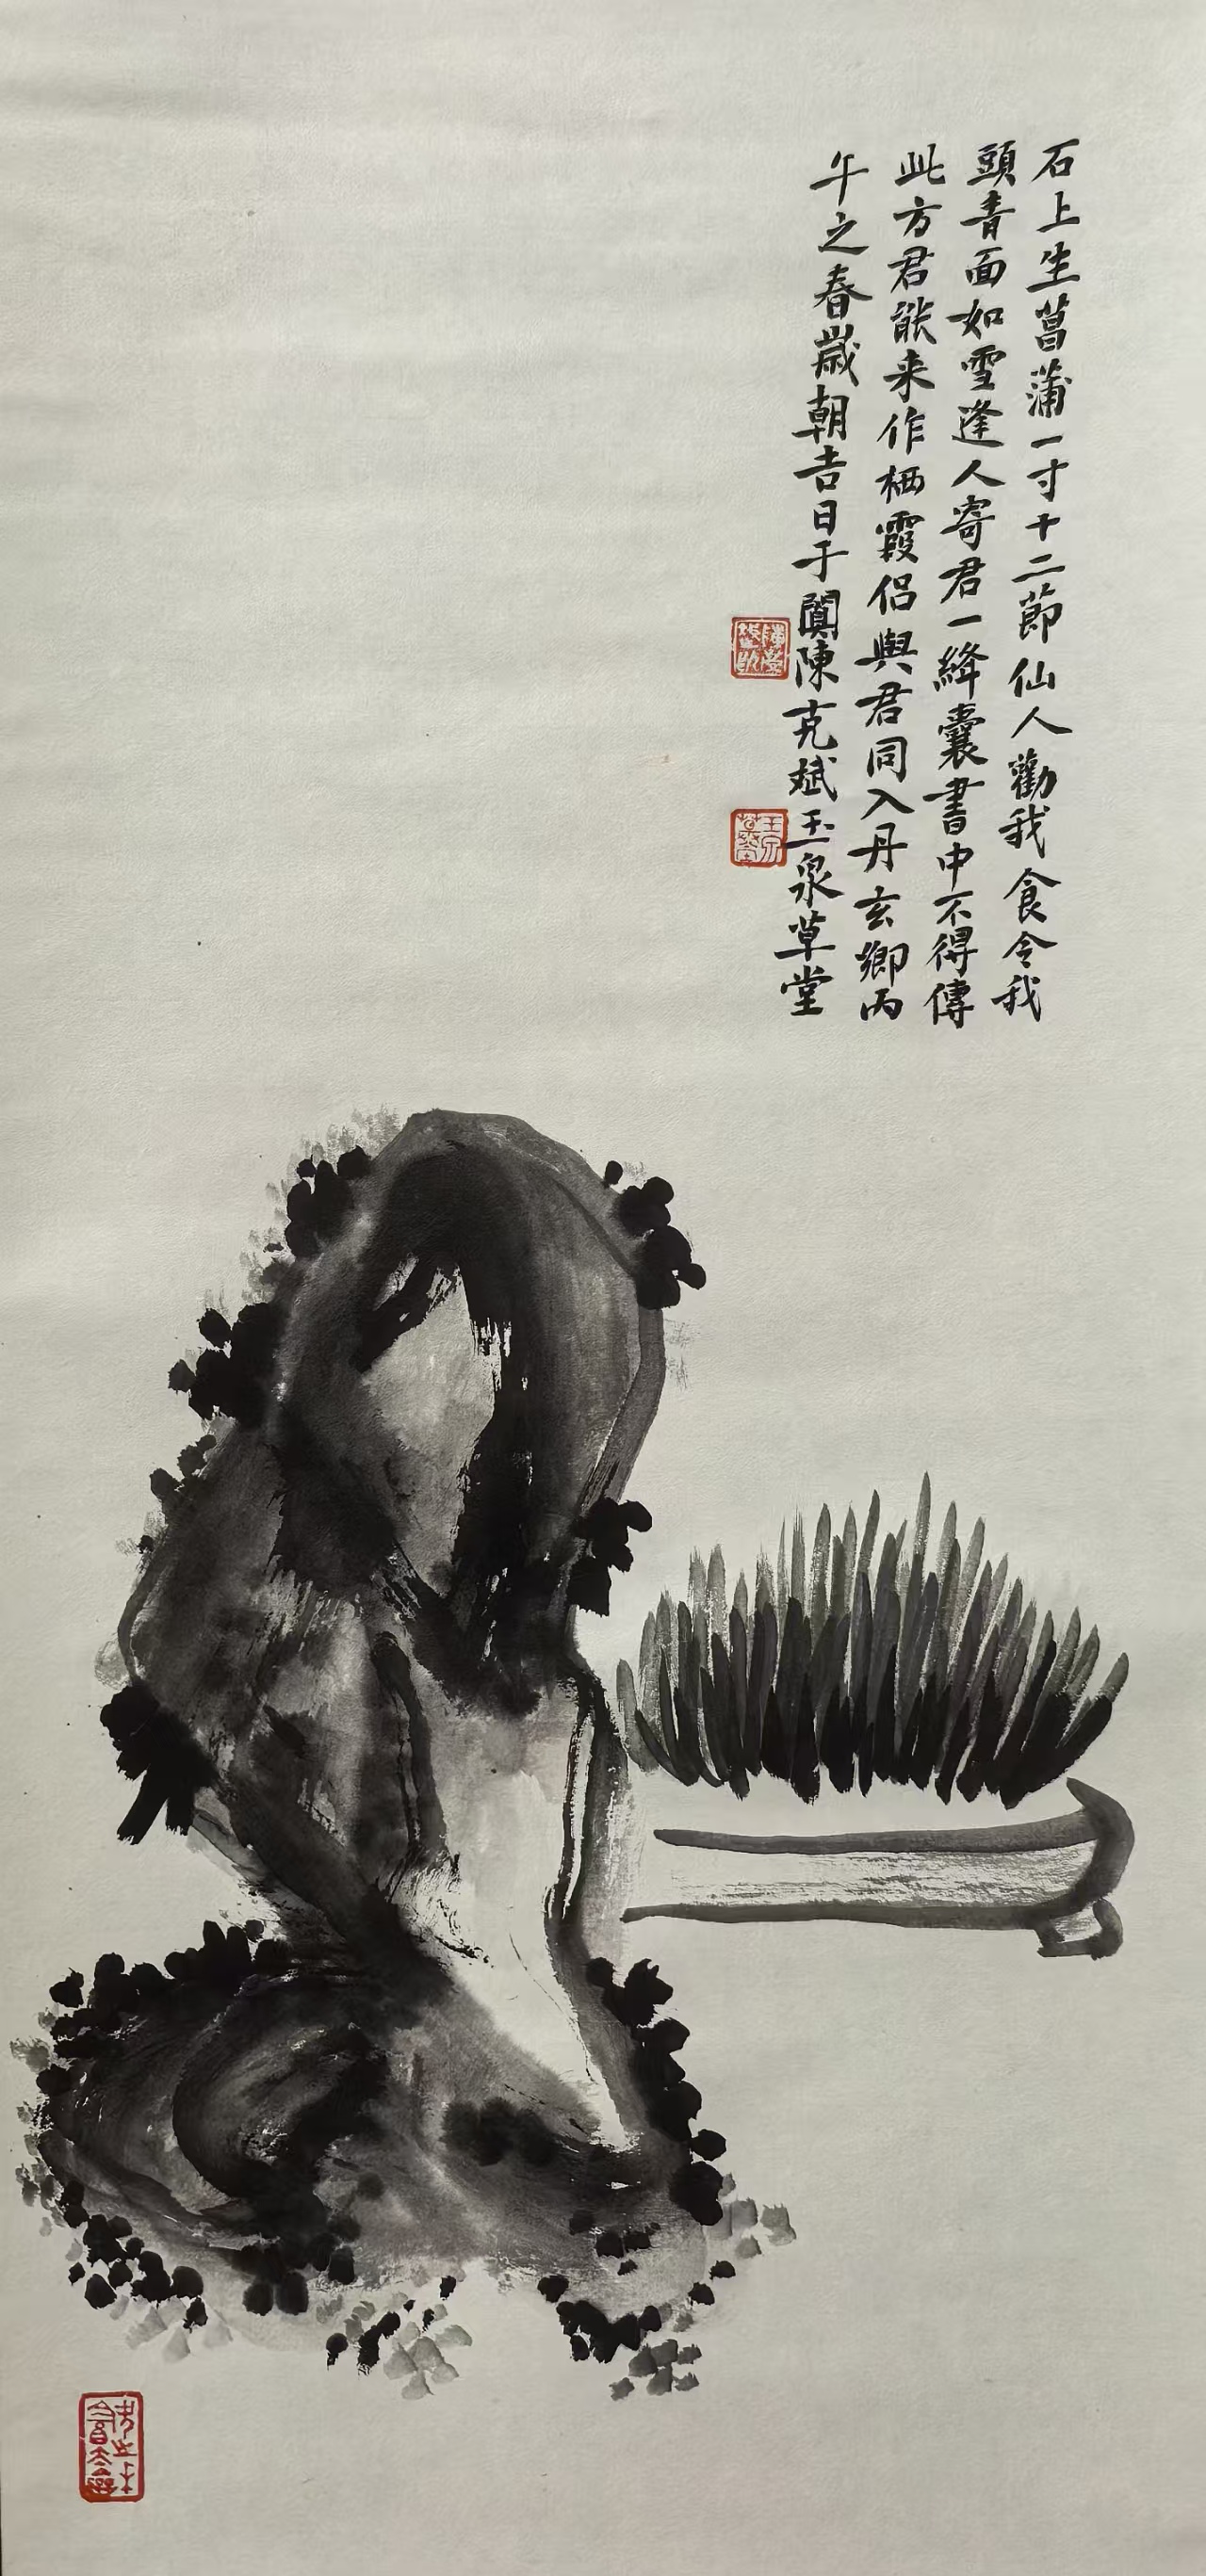 石上生菖蒲一寸十二節仙人勸我食令我
頭青面如雪逢人寄君一絳囊書中不得傳
此方君能来作栖霞侶與君同入丹玄鄉丙
午之春歲朝吉日于闐陳克斌玉泉草堂